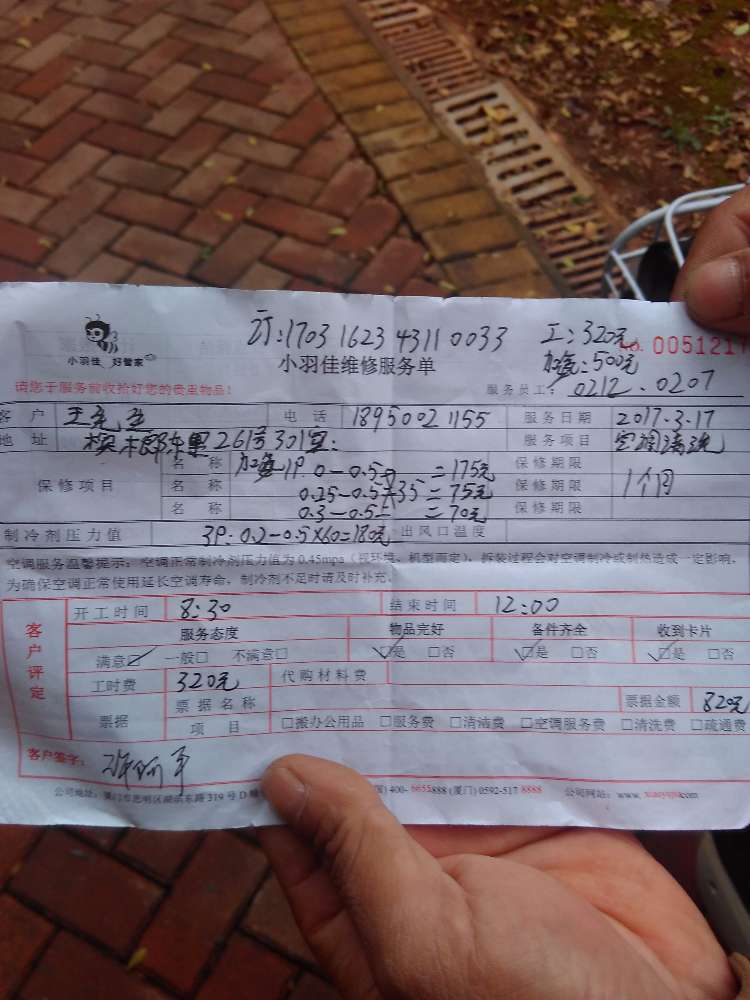 订:1703 1623 4311 0033
工:320元
加氨:500元
No. 0051217
小羽佳 好管家
小羽佳维修服务单
请您于服务前收拾好您的贵重物品!
服务员工: 0212.0207
客户 王先生 电话 18950021155 服务日期 2017.3.17
地址 槟榔东里261号301室: 服务项目 空调清洗
保修项目
名称 1P. 0-0.5 =175元 保修期限
名称 0.25-0.5×35 =75元 保修期限 1个月
名称 0.3-0.5 =70元 保修期限
制冷剂压力值 3P:0.2-0.5×60=180元 出风口温度
空调服务温馨提示:空调正常制冷剂压力值为0.45mpa(视环境、机型而定),拆装过程会对空调制冷或制热造成一定影响,
为确保空调正常使用延长空调寿命,制冷剂不足时请及时补充。
客户评定
开工时间 8:30 结束时间 12:00
服务态度 物品完好 备件齐全 收到卡片
满意☑ 一般□ 不满意□ ☑是 □否 ☑是 □否 ☑是 □否
工时费 320元 代购材料费
票据 票据名称 票据金额 820元
项目 □搬办公用品 □服务费 □清洁费 □空调服务费 □清洗费 □疏通费
客户签字:
公司地址:厦门市思明区湖滨东路319号D 400-6655888 (厦门) 0592-517 8888 公司网址:www. xiaoyujia.com